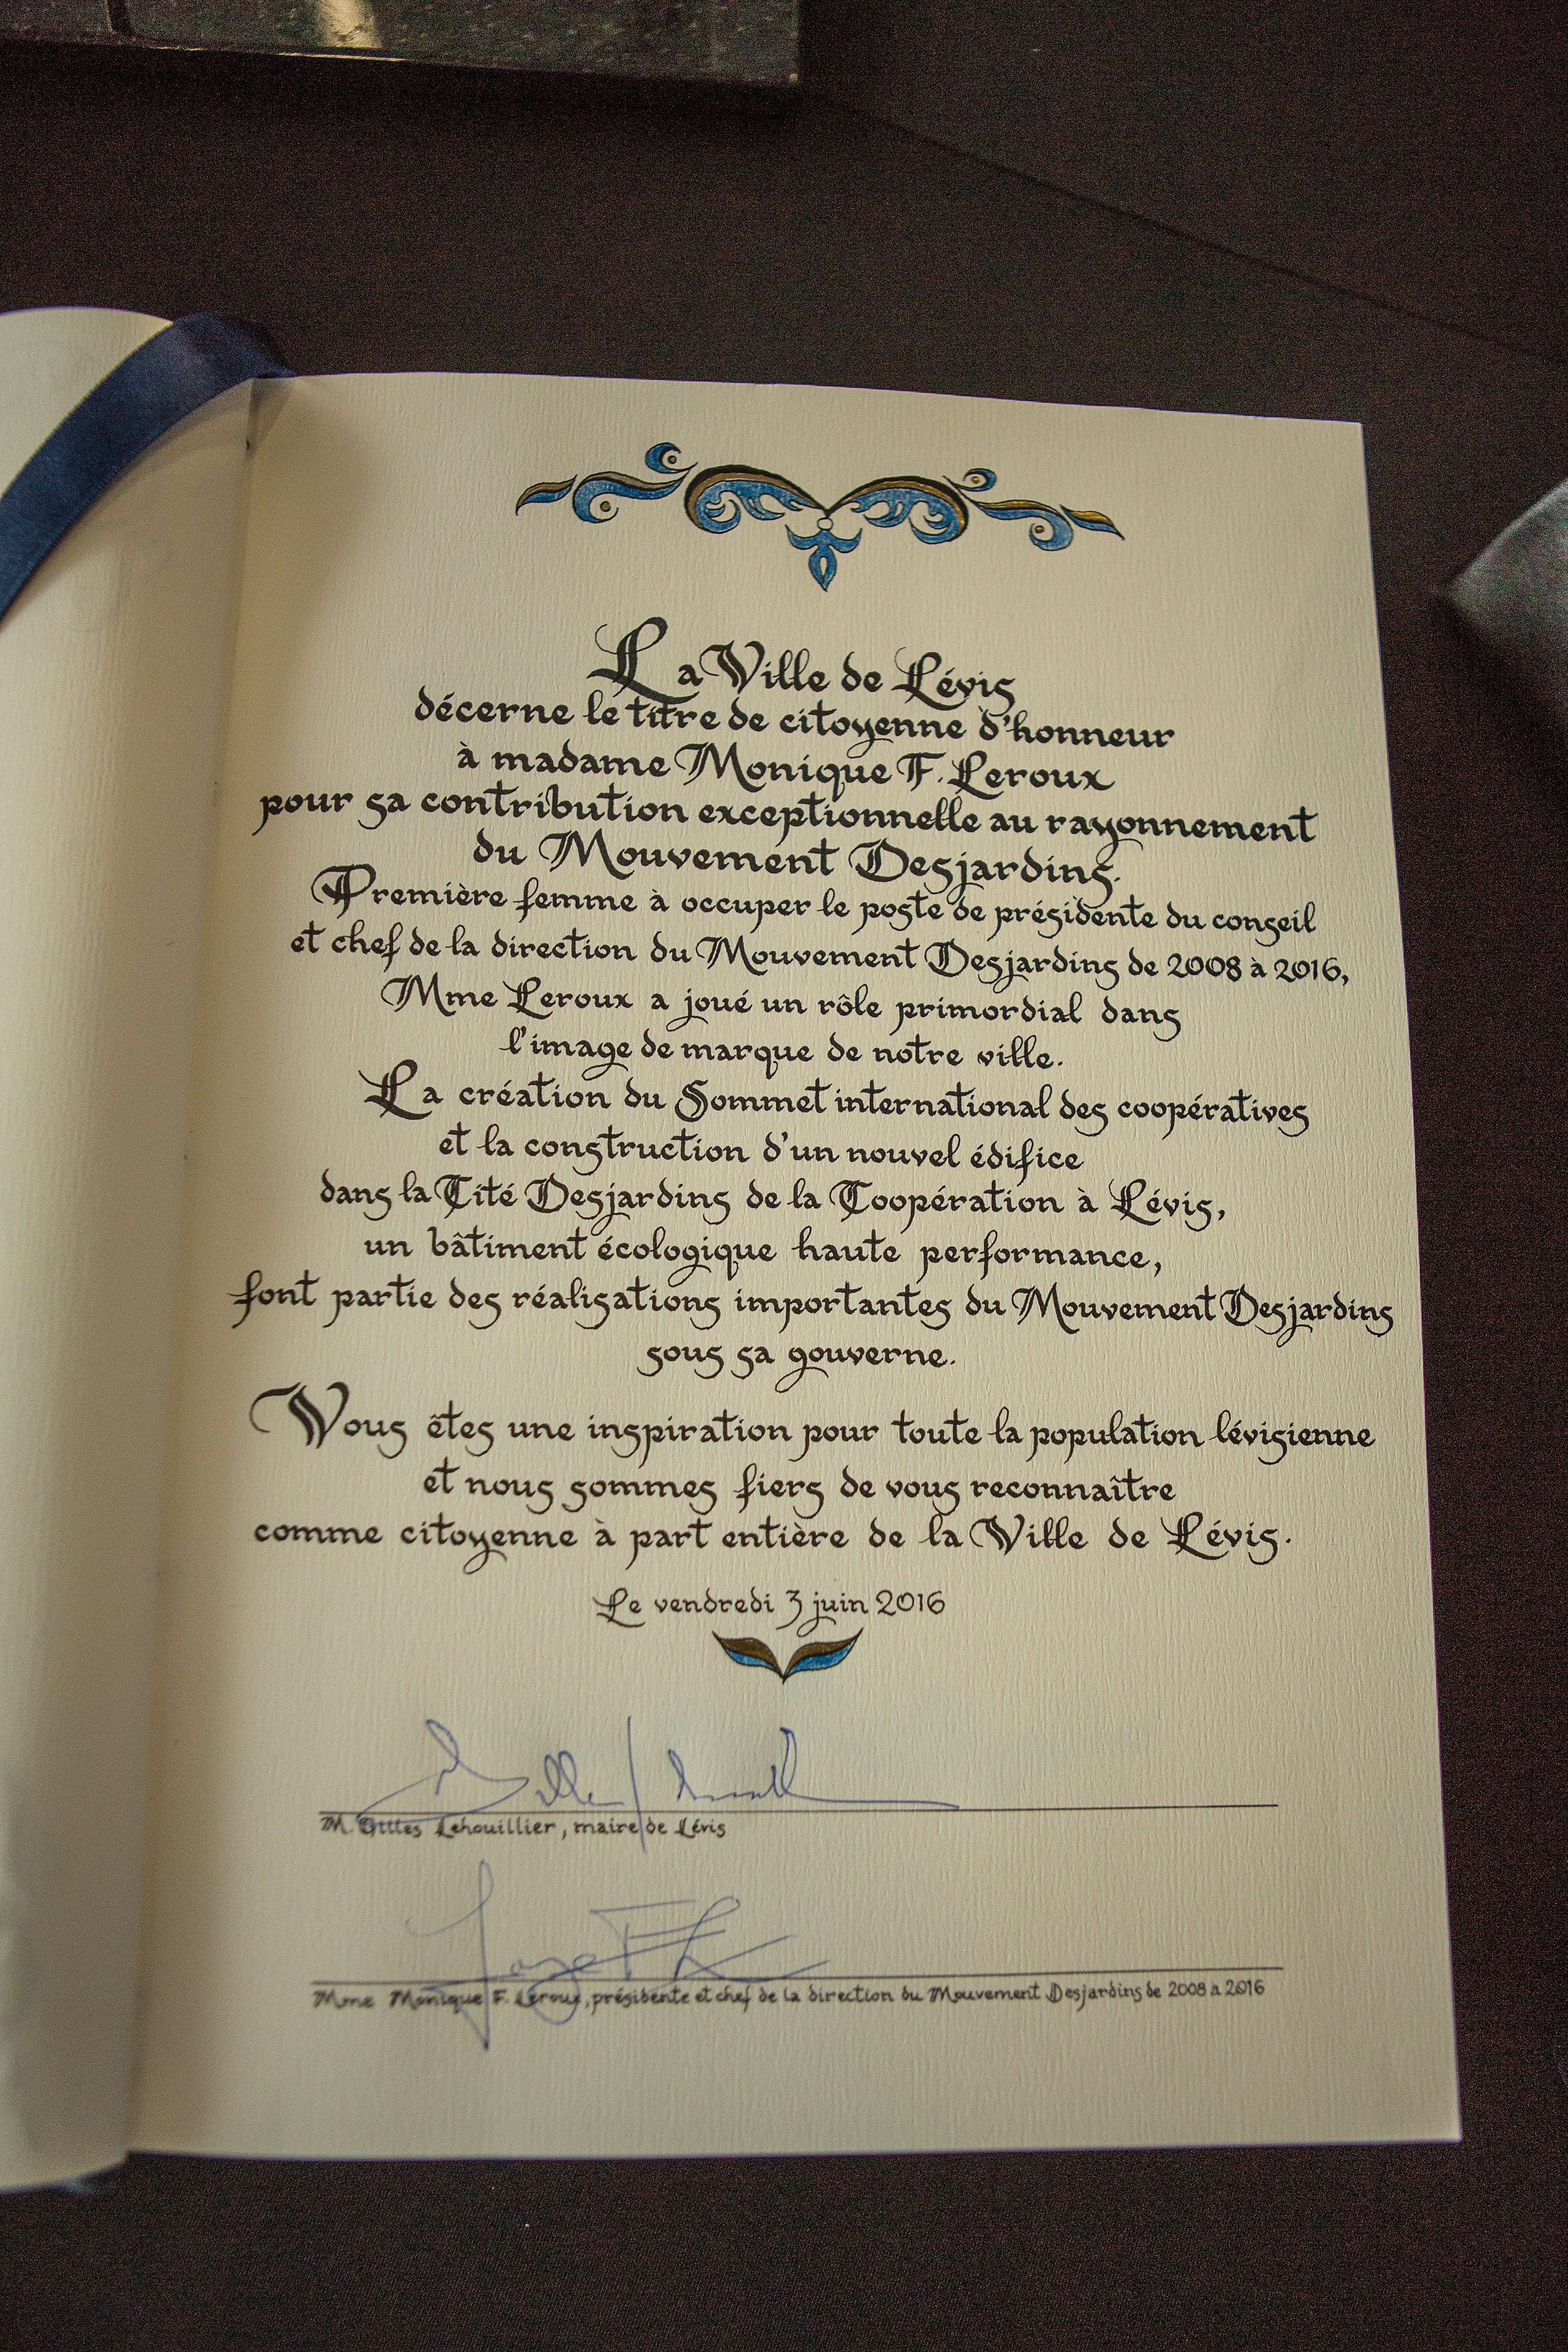 La Ville de Lévis
décerne le titre de citoyenne d'honneur
à madame Monique F. Leroux
pour sa contribution exceptionnelle au rayonnement
du Mouvement Desjardins.
Première femme à occuper le poste de présidente du conseil
et chef de la direction du Mouvement Desjardins de 2008 à 2016,
Mme Leroux a joué un rôle primordial dans
l'image de marque de notre ville.
La création du Sommet international des coopératives
et la construction d'un nouvel édifice
dans la Cité Desjardins de la Coopération à Lévis,
un bâtiment écologique haute performance,
font partie des réalisations importantes du Mouvement Desjardins
sous sa gouverne.
Vous êtes une inspiration pour toute la population lévisienne
et nous sommes fiers de vous reconnaître
comme citoyenne à part entière de la Ville de Lévis.
Le vendredi 3 juin 2016
M. Gilles Lehouillier, maire de Lévis
Mme Monique F. Leroux, présidente et chef de la direction du Mouvement Desjardins de 2008 à 2016